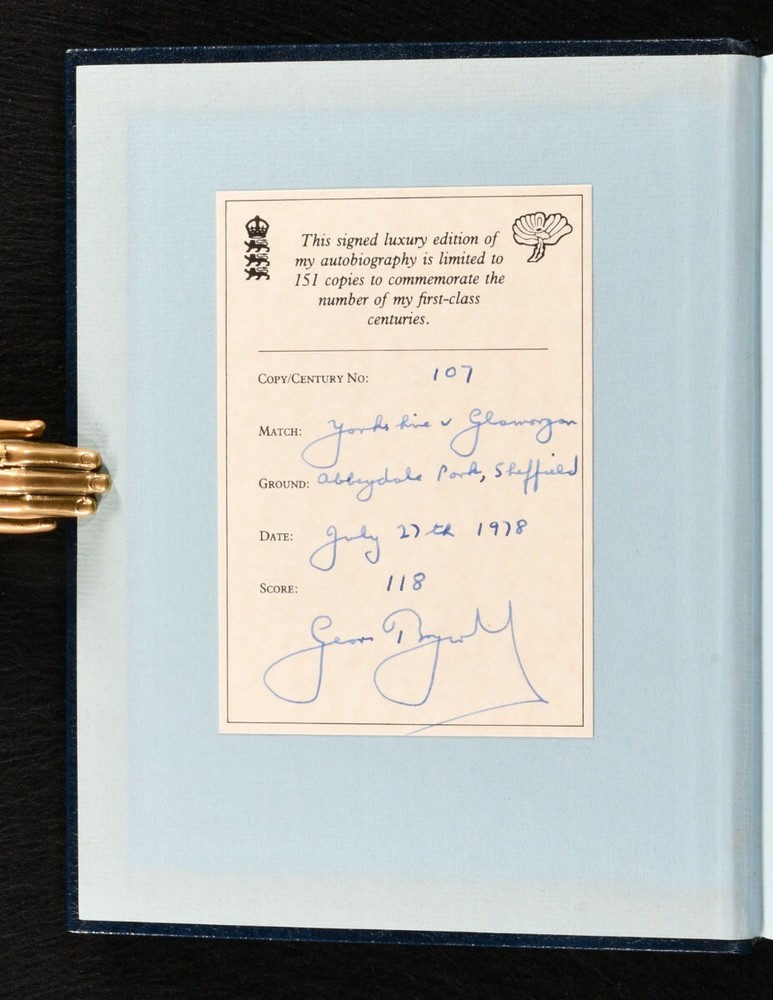 This signed luxury edition of
my autobiography is limited to
151 copies to commemorate the
number of my first-class
centuries.
COPY/CENTURY NO: 107
MATCH: Yorkshire v Glamorgan
GROUND: Abbeydale Park, Sheffield
DATE: July 27th 1978
SCORE: 118
Geoff Boycott